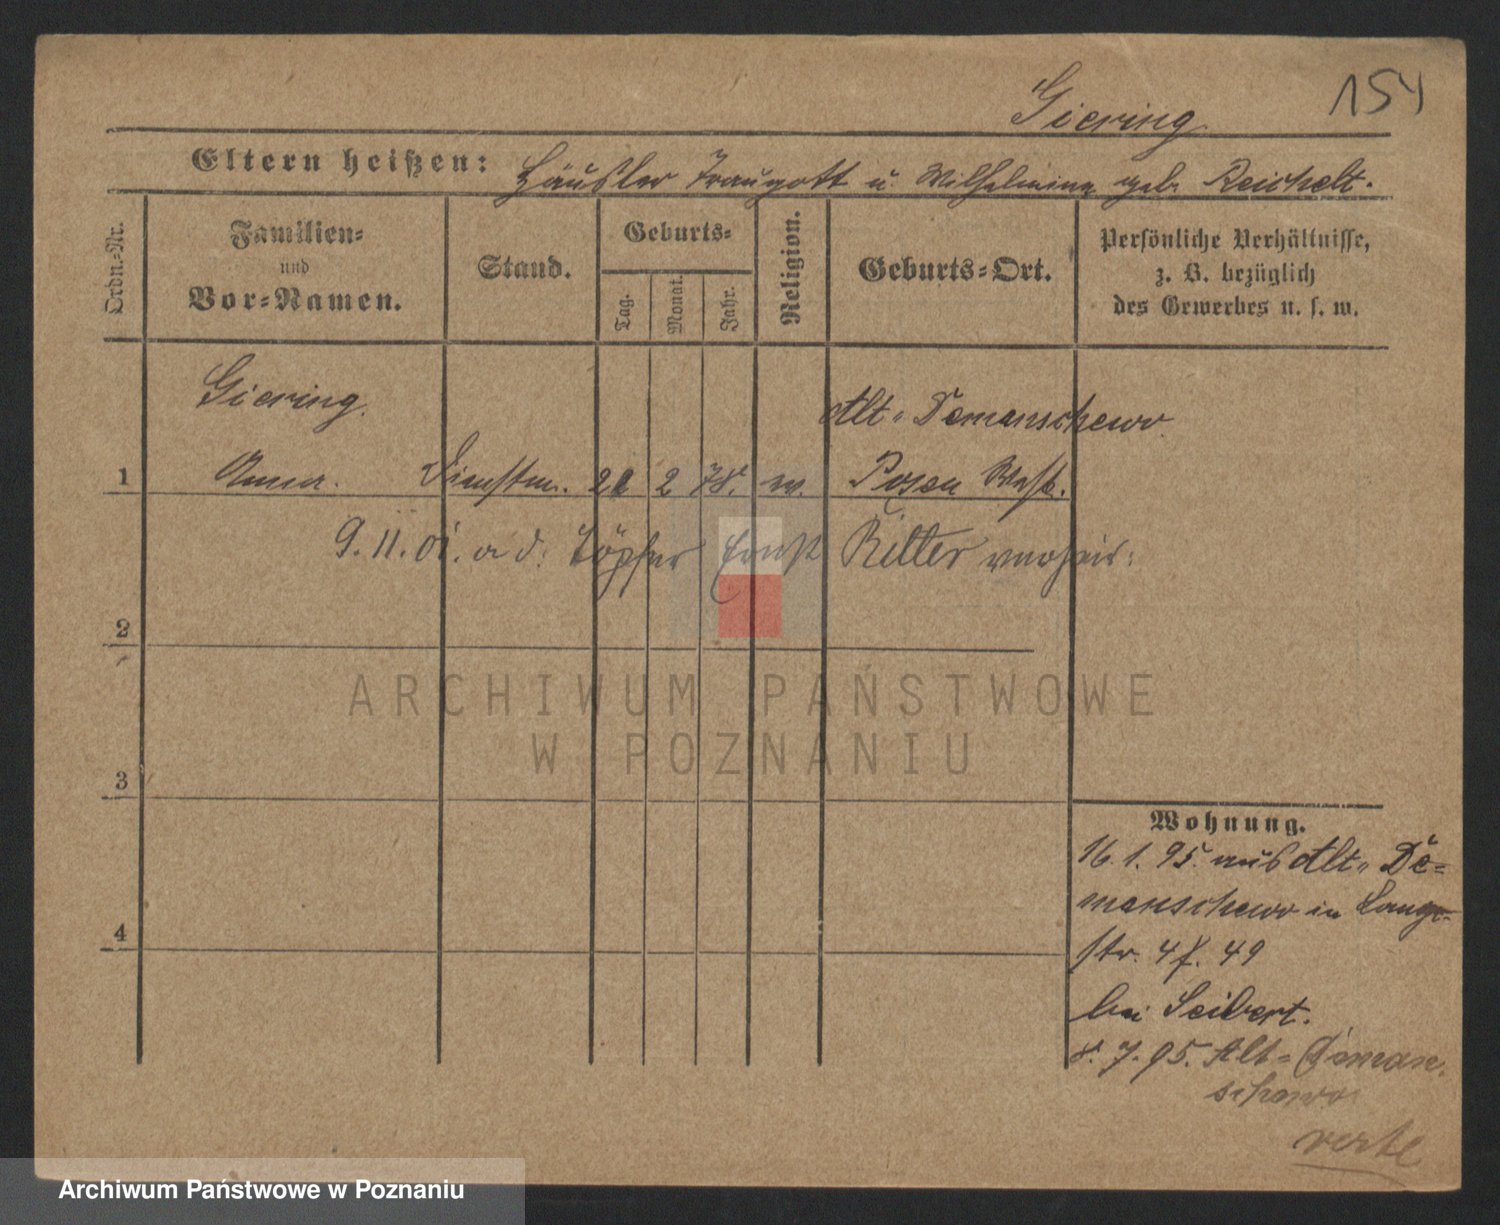 154
Giering
Eltern heißen: Häusler Traugott u. Wilhelmine geb. Reichelt.
Ordn.-Nr.
Familien-
und
Vor-Namen.
Stand.
Geburts-
Tag.
Monat.
Jahr.
Religion.
Geburts-Ort.
Persönliche Verhältnisse,
z. B. bezüglich
des Gewerbes u. s. w.
Giering.
Alt-Demanschewo
1 Anna. Dienstm. 2 78. ev. Posen West.
9. 11. 01. a d. Töpfer Ernst Ritter verheir:
2
ARCHIWUM PAŃSTWOWE
W POZNANIU
3
4
Wohnung.
16. 1. 95. aus Alt-De=
manschewo in Lange-
str. 49
bei Seibert.
8. 7. 95. Alt-Deman
schewo
verte
Archiwum Państwowe w Poznaniu